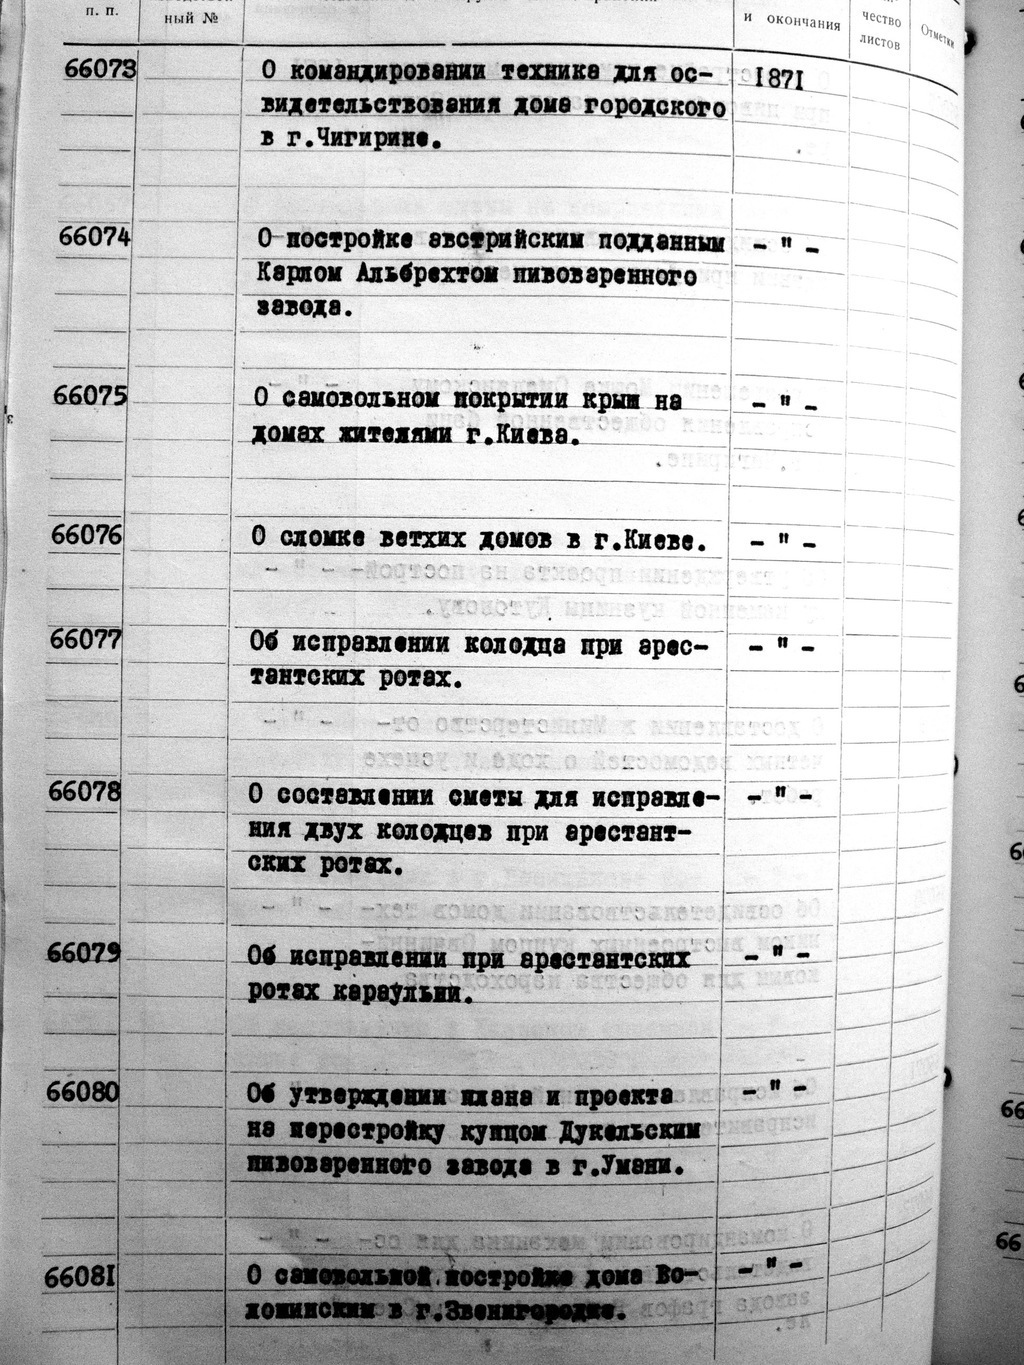 п. п.
ный №
и окончания
чество
листов
Отметки
66073 О командировании техника для ос- 1871
видетельствования дома городского
в г.Чигирине.
66074 О постройке австрийским подданным - " -
Карлом Альбрехтом пивоваренного
завода.
66075 О самовольном покрытии крыш на - " -
домах жителями г.Киева.
66076 О сломке ветхих домов в г.Киеве. - " -
66077 Об исправлении колодца при арес- - " -
тантских ротах.
66078 О составлении сметы для исправле- - " -
ния двух колодцев при арестант-
ских ротах.
66079 Об исправлении при арестантских - " -
ротах караульни.
66080 Об утверждении плана и проекта - " -
на перестройку купцом Дукельским
пивоваренного завода в г.Умани.
66081 О самовольной постройке дома Во- - " -
лошинским в г.Звенигородке.